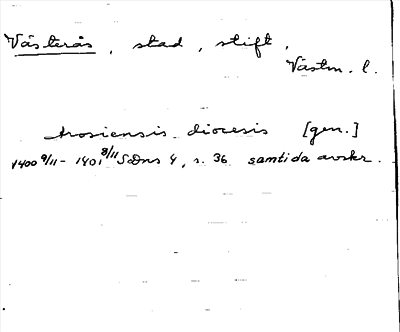 Västerås, stad, stift,
Västm. l.
Arosiensis diocesis [gen.]
1400 9/11 - 1401 8/11 SDns 4, s. 36 samtida avskr.